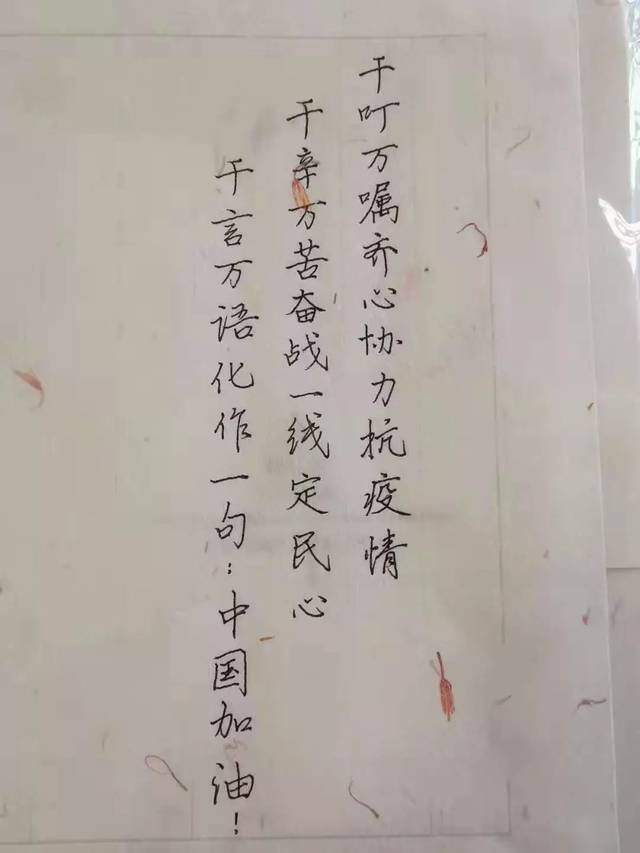 千叮万嘱齐心协力抗疫情
千辛万苦奋战一线定民心
千言万语化作一句：中国加油！